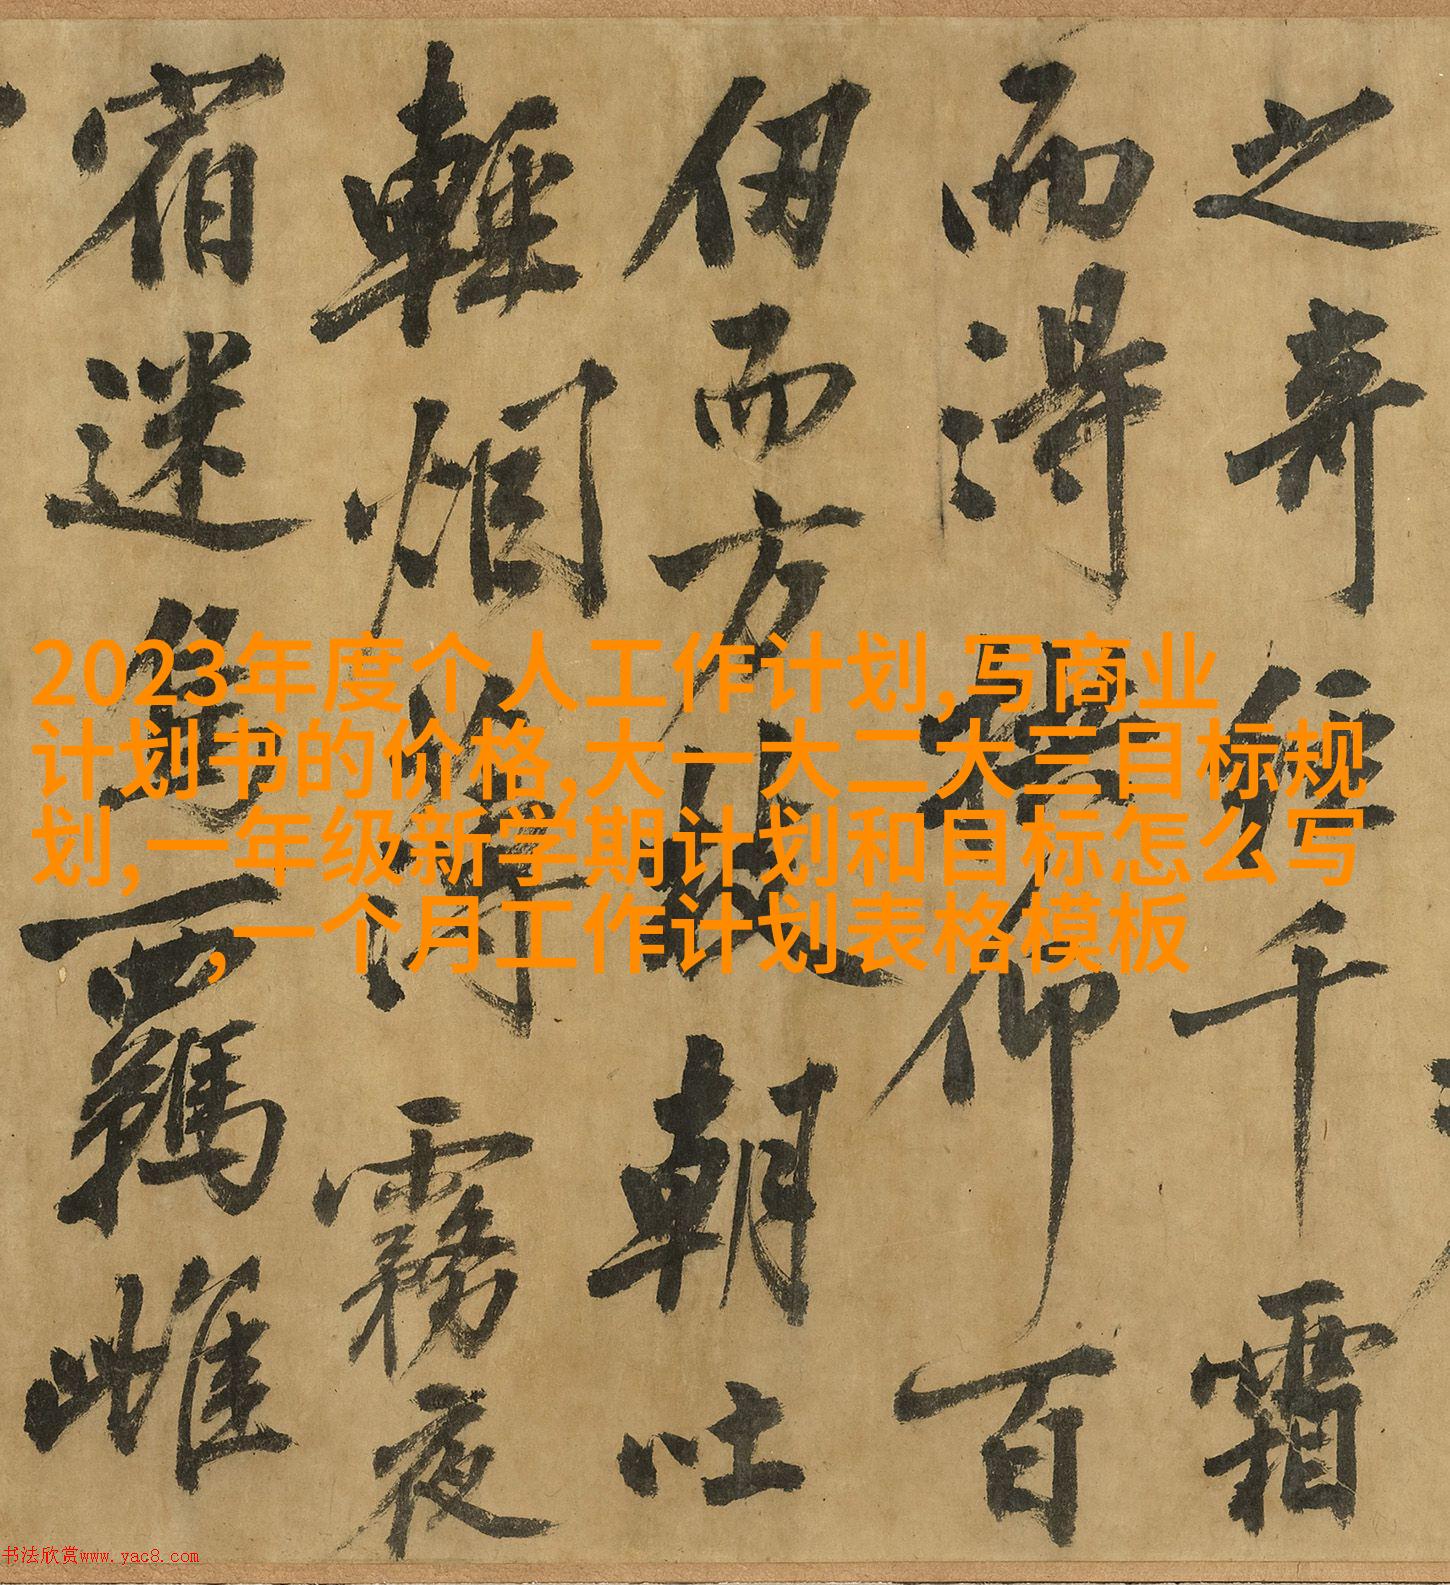 之奇千霜
而得拱仰百
仞而方朝吐
輕烟薄霧夜
宿迷鳥羈雌
2023年度个人工作计划,写商业
计划书的价格,大一大二大三目标规
划,一年级新学期计划和目标怎么写
，一个月工作计划表格模板
书法欣赏www.yac8.com